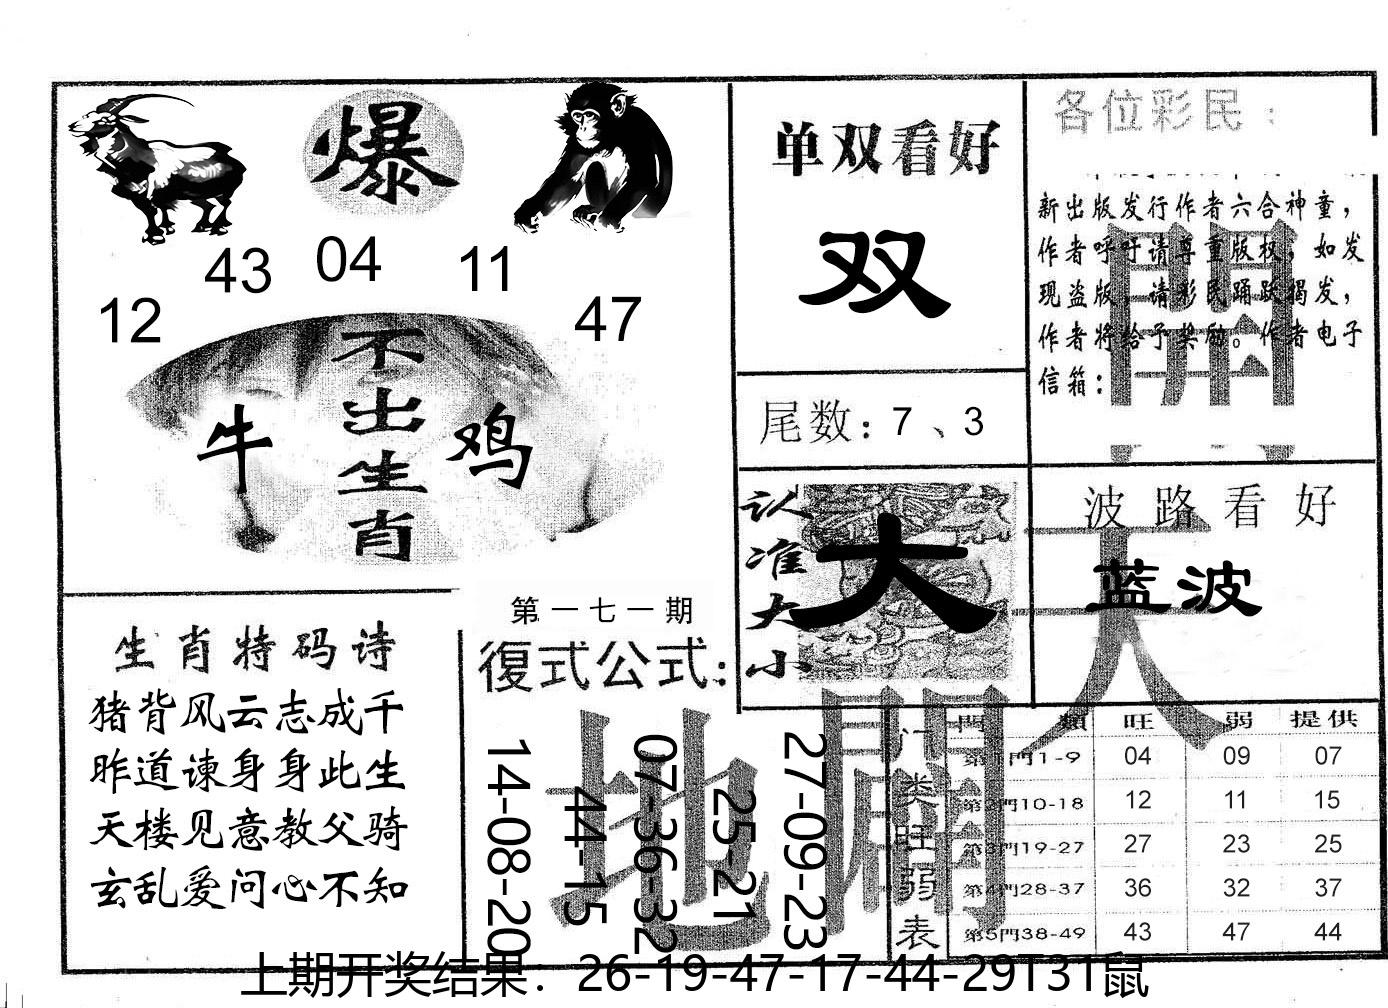 爆
43 04 11
12 47
不出生肖
牛 鸡
单双看好
双
尾数：7、3
各位彩民：
新出版发行作者六合神童，
作者呼吁请尊重版权，如发
现盗版，请彩民踊跃揭发，
作者将给予奖励。作者电子
信箱：
認准大小
大
波路看好
蓝波
天
開
地
閙
生肖特码诗
猪背风云志成千
昨道谏身身此生
天楼见意教父骑
玄乱爱问心不知
第一七一期
復式公式：
14-08-20
44-15
07-36-32
25-21
27-09-23
门类旺弱表
門類 旺 弱 提供
第1門1-9 04 09 07
第2門10-18 12 11 15
第3門19-27 27 23 25
第4門28-37 36 32 37
第5門38-49 43 47 44
上期开奖结果：26-19-47-17-44-29T31鼠